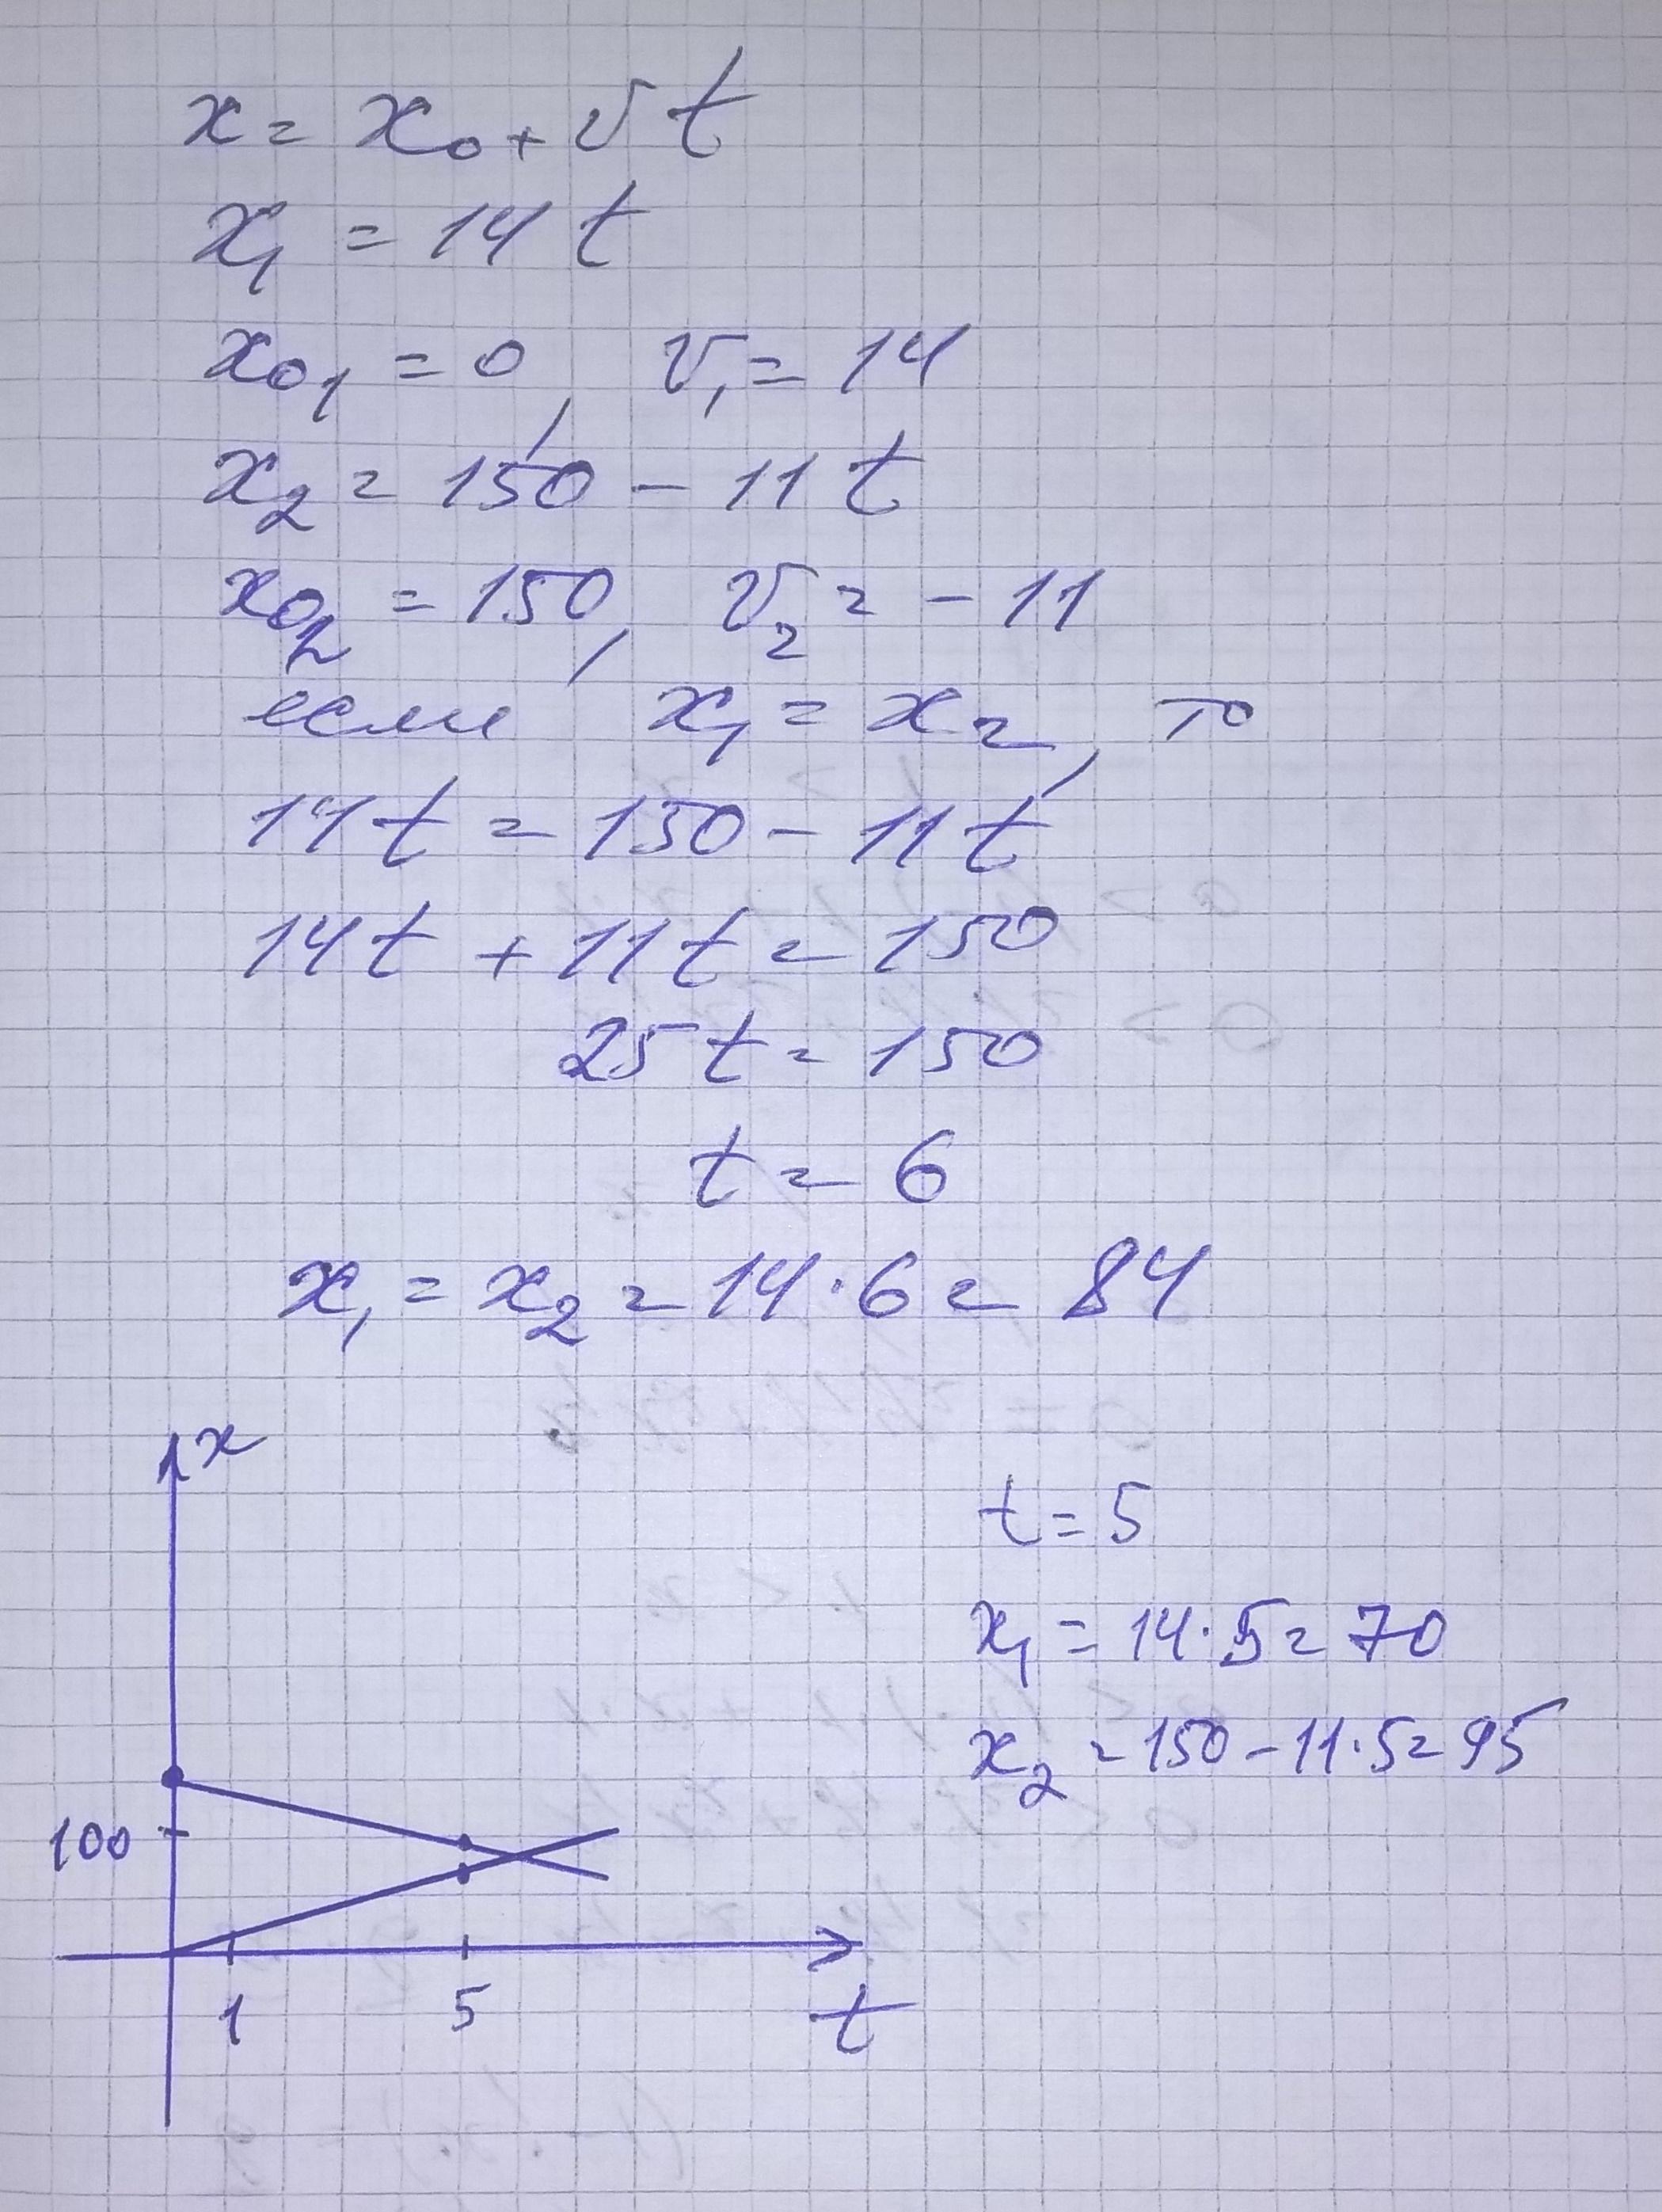 x = x₀ + vt
x₁ = 14t
x₀₁ = 0, v₁ = 14
x₂ = 150 - 11t
x₀₂ = 150, v₂ = -11
если x₁ = x₂, то
14t = 150 - 11t
14t + 11t = 150
25t = 150
t = 6
x₁ = x₂ = 14·6 = 84
x
t = 5
x₁ = 14·5 = 70
x₂ = 150 - 11·5 = 95
100
1 5 t